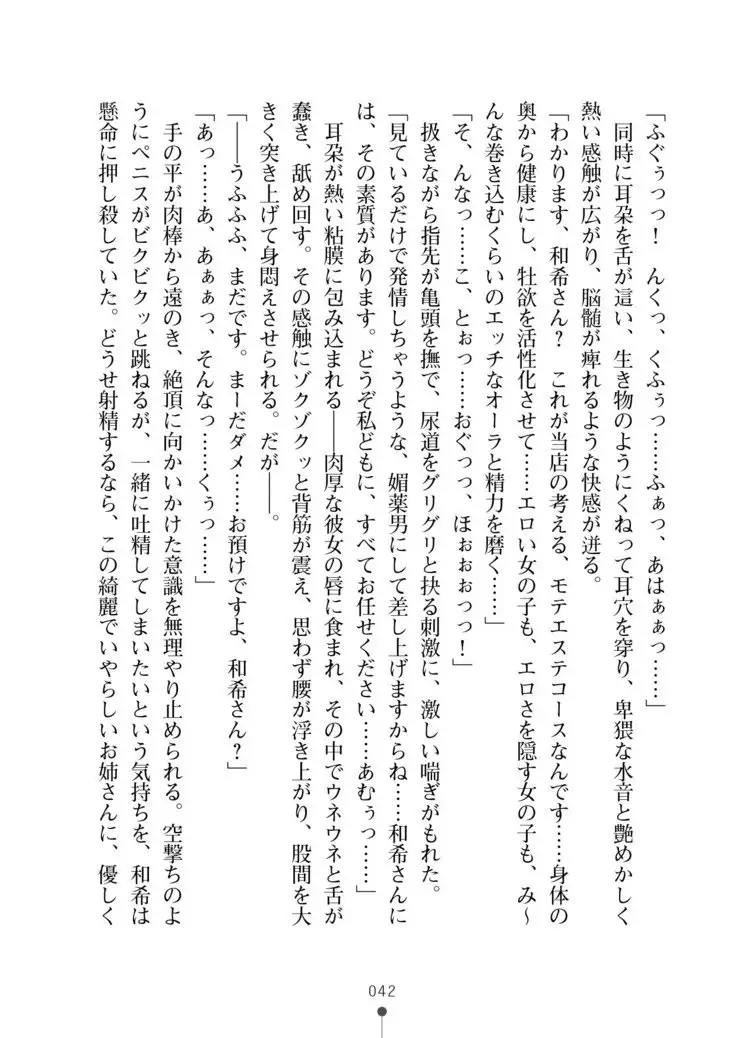 「ふぐぅっっ！　んくっ、くふぅっ……ふぁっ、あはぁぁっ……」
　同時に耳朶を舌が這い、生き物のようにくねって耳穴を穿り、卑猥な水音と艶めかしく
熱い感触が広がり、脳髄が痺れるような快感が迸る。
「わかります、和希さん？　これが当店の考える、モテエステコースなんです……身体の
奥から健康にし、牡欲を活性化させて……エロい女の子も、エロさを隠す女の子も、み〜
んな巻き込むくらいのエッチなオーラと精力を磨く……」
「そ、んなっ……こ、とぉっ……おぐっっ、ほぉぉぉっっ！」
　扱きながら指先が亀頭を撫で、尿道をグリグリと抉る刺激に、激しい喘ぎがもれた。
「見ているだけで発情しちゃうような、媚薬男にして差し上げますからね……和希さんに
は、その素質があります。どうぞ私どもに、すべてお任せください……あむぅっ……」
　耳朶が熱い粘膜に包み込まれる――肉厚な彼女の唇に食まれ、その中でウネウネと舌が
蠢き、舐め回す。その感触にゾクゾクッと背筋が震え、思わず腰が浮き上がり、股間を大
きく突き上げて身悶えさせられる。だが――。
「――うふふふ、まだです。まーだダメ……お預けですよ、和希さん？」
「あっ……あ、あぁぁっ、そんなっ……くぅっ……」
　手の平が肉棒から遠のき、絶頂に向かいかけた意識を無理やり止められる。空撃ちのよ
うにペニスがビクビクッと跳ねるが、一緒に吐精してしまいたいという気持ちを、和希は
懸命に押し殺していた。どうせ射精するなら、この綺麗でいやらしいお姉さんに、優しく
042